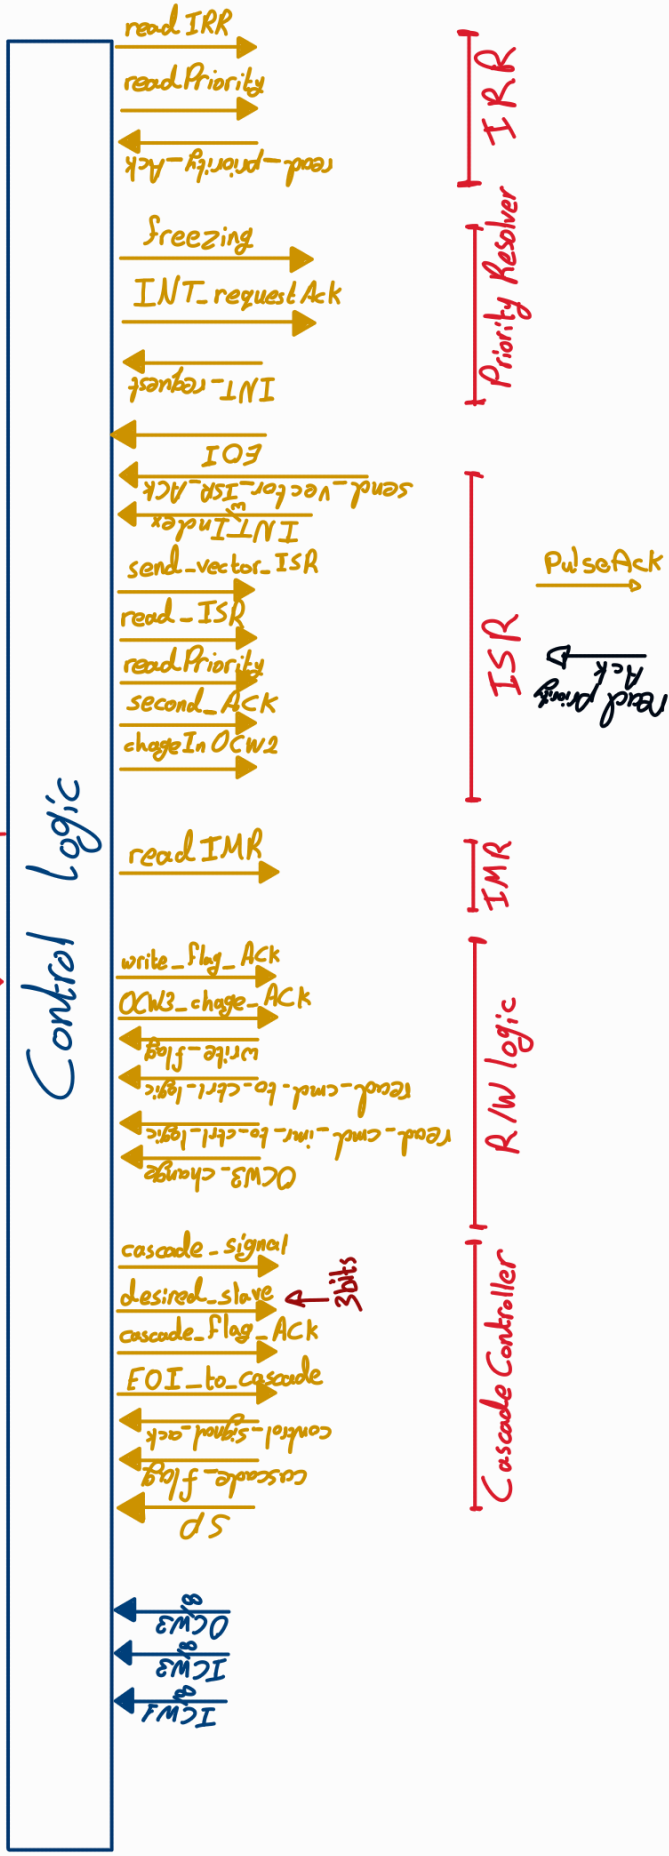 Control logic
readIRR
readPriority
read_priority_Ack
IRR
freezing
INT_requestAck
INT_request
Priority Resolver
EOI
send_vector_ISR_ACK
3
INTIndex
send_vector_ISR
read_ISR
readPriority
second_ACK
chageInOCW2
ISR
PulseAck
read priority
Ack
readIMR
IMR
write_flag_ACK
OCW3_chage_ACK
write_flag
read_cmd_to_ctrl_logic
read_cmd_imr_to_ctrl_logic
OCW3_change
R/W logic
cascade_signal
desired_slave
3bits
cascade_flag_ACK
EOI_to_cascade
control_signal_ack
cascade_flag
SP
Cascade Controller
8
OCW3
8
ICW3
8
ICW1